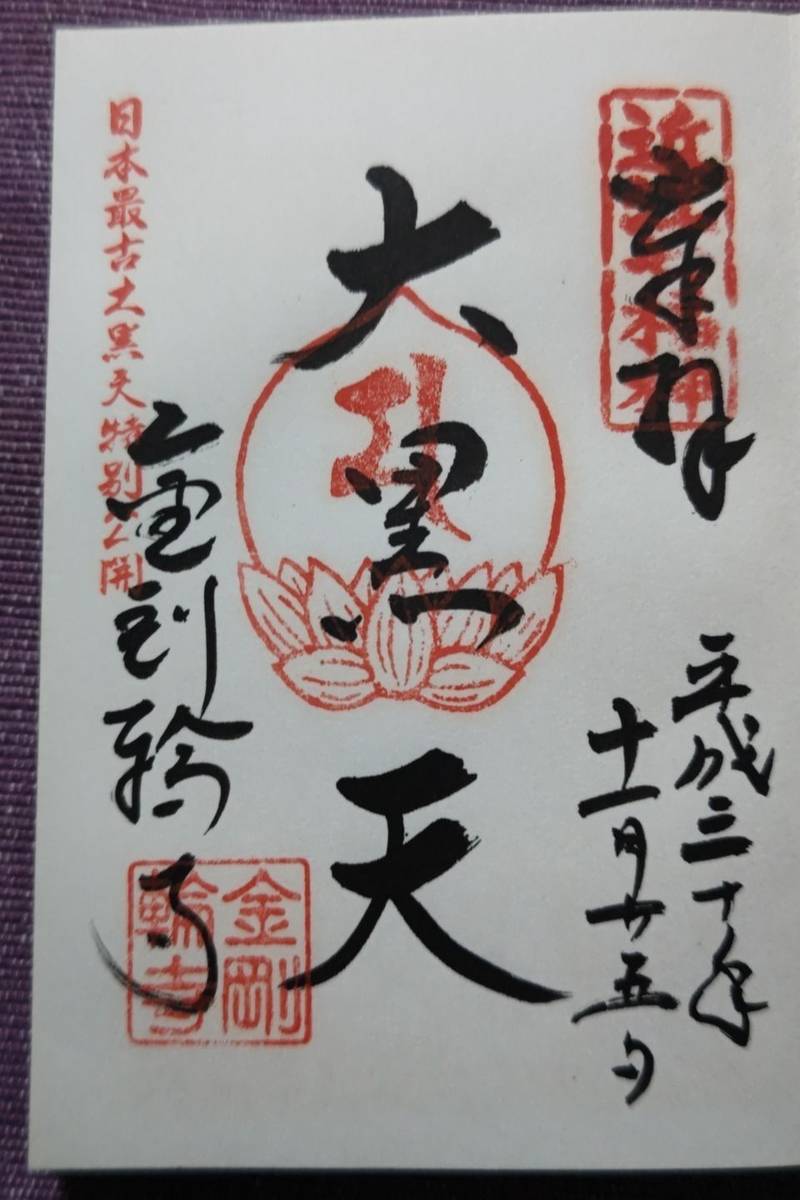 奉拝
平成三十年
十一月廿五日
大黒天
日本最古大黒天特別公開
金剛輪寺
金剛
輪寺